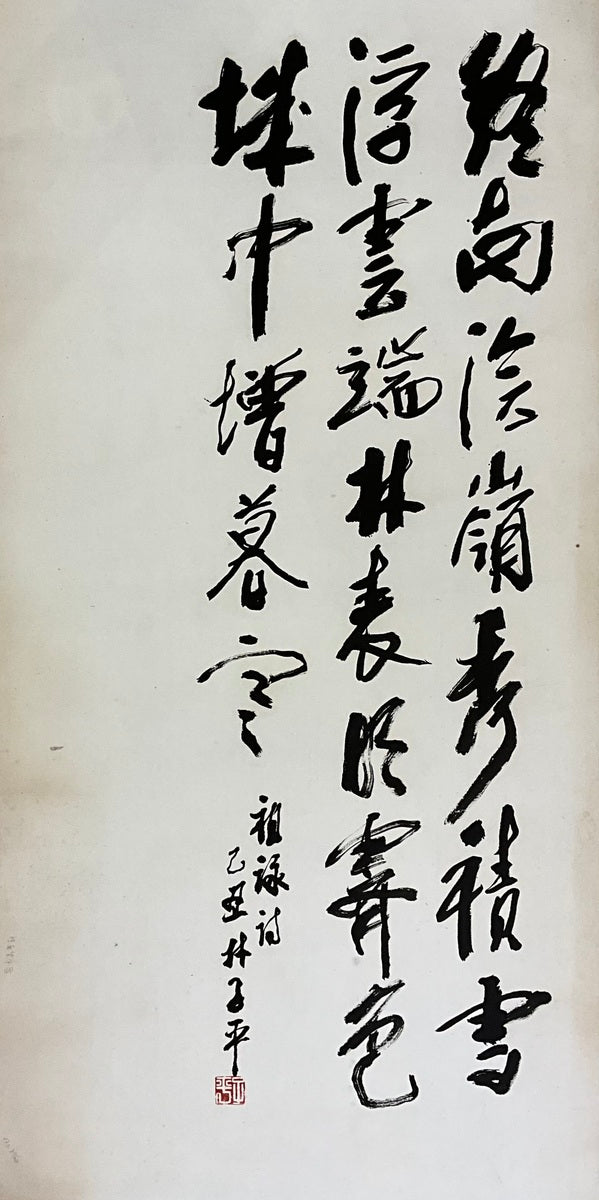 終南陰嶺秀積雪
浮雲端林表明霽色
城中增暮寒
祖詠詩
己丑林子平